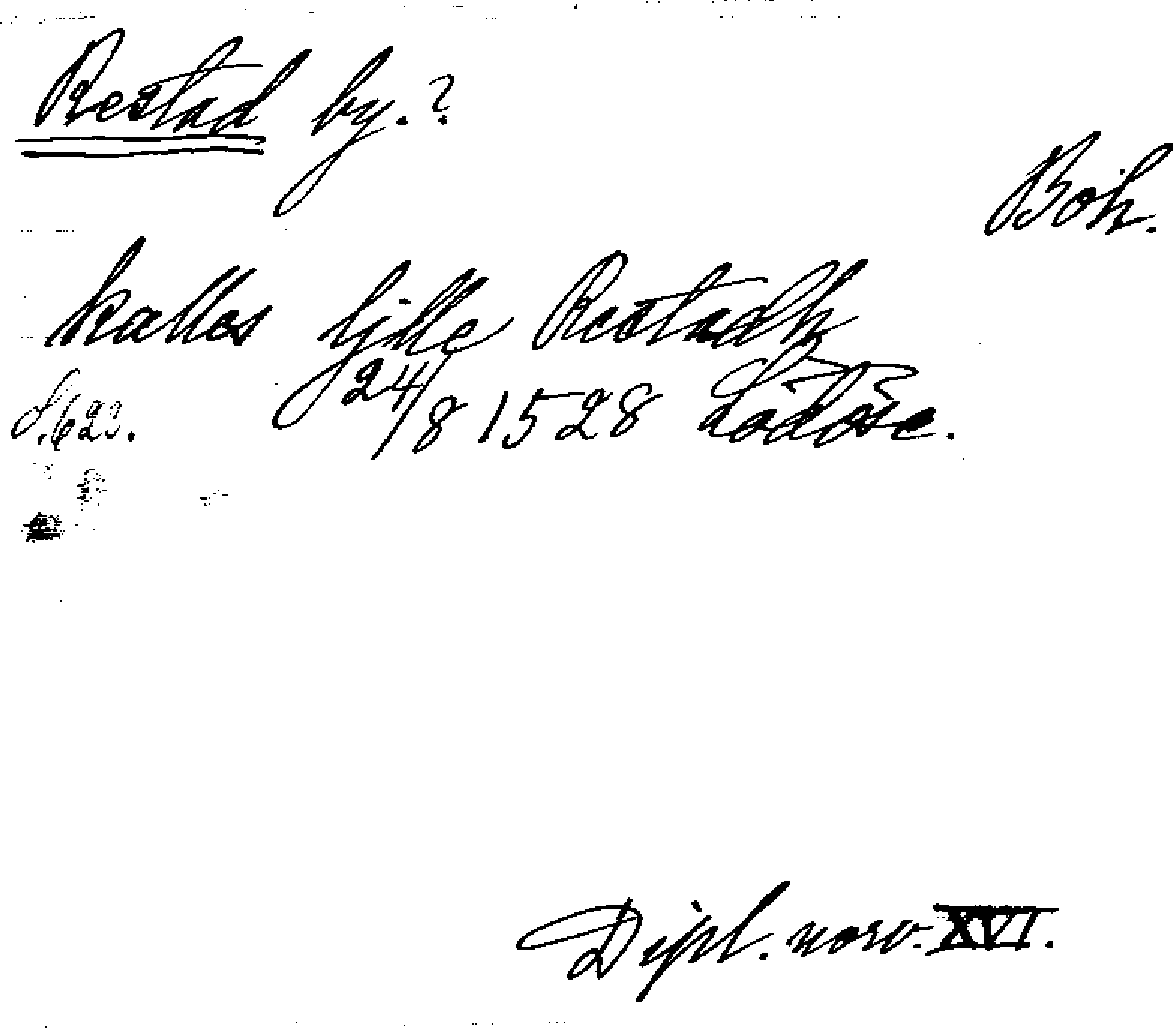 Restad by.?
Boh.
kalles ljille Restadh
S. 623. 24/8 1528 Lödöse.
Dipl. norv. XVI.